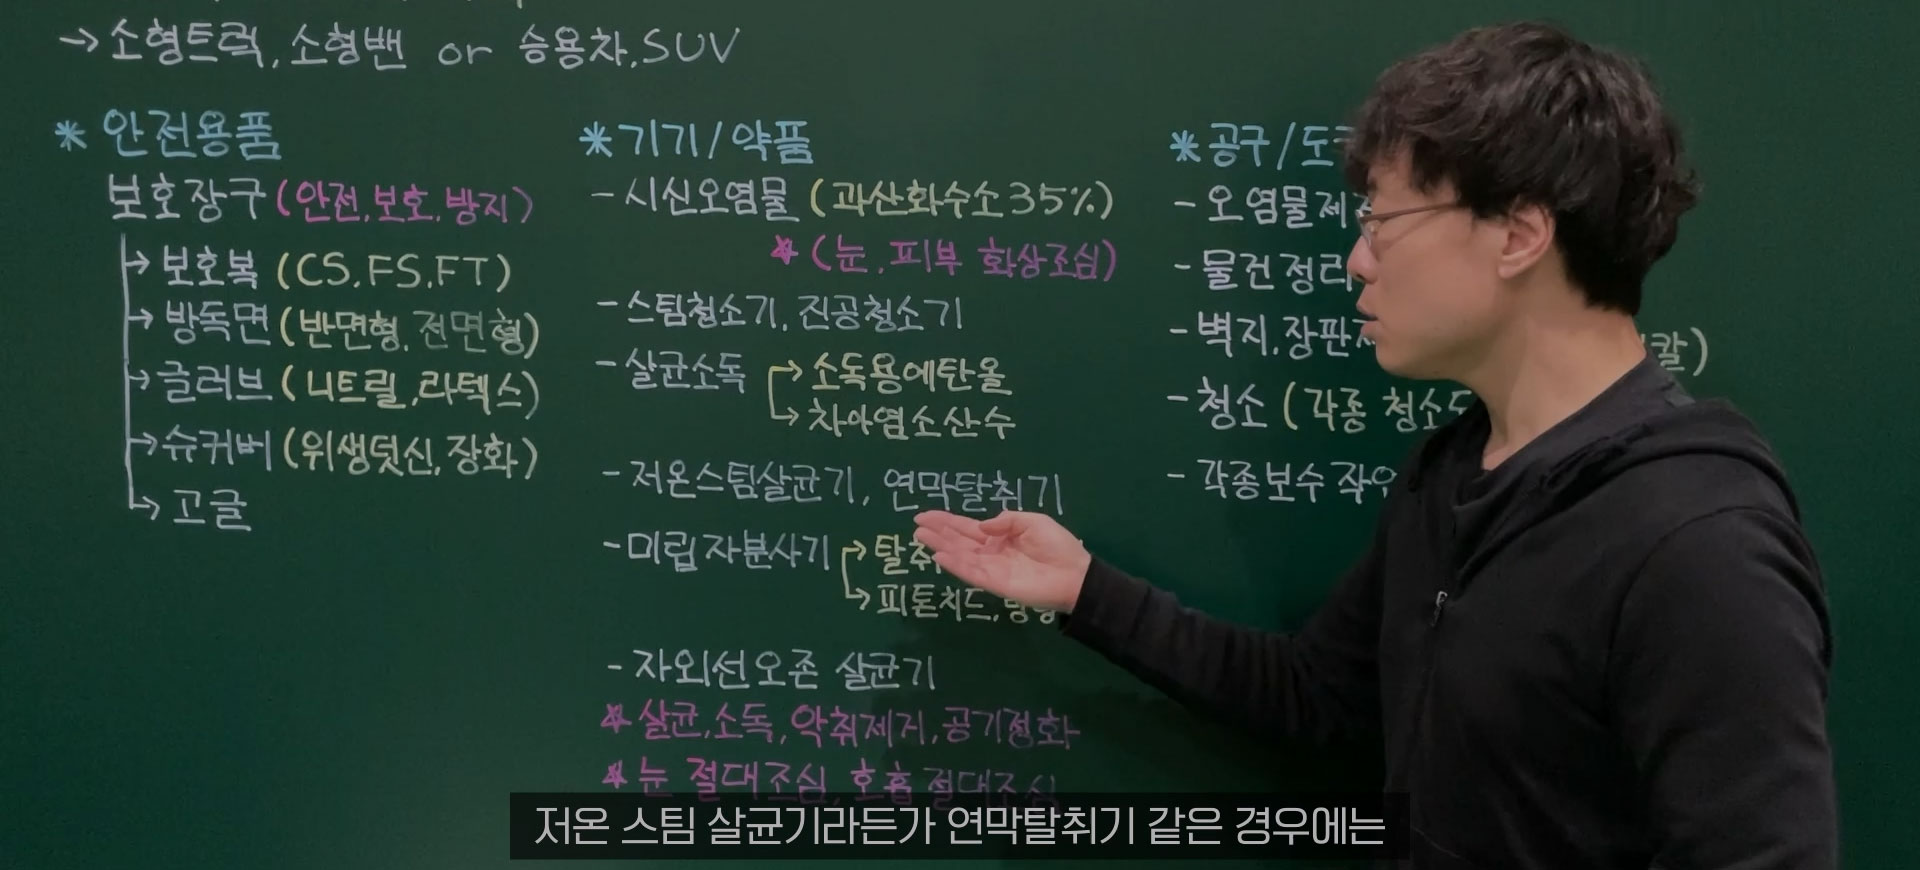 → 소형트럭, 소형밴 or 승용차, SUV
* 안전용품
보호장구 (안전, 보호, 방지)
→ 보호복 (CS, FS, FT)
→ 방독면 (반면형, 전면형)
→ 글러브 (니트릴, 라텍스)
→ 슈커버 (위생덧신, 장화)
→ 고글
* 기기/약품
- 시신오염물 (과산화수소 35%)
* (눈, 피부 화상조심)
- 스팀청소기, 진공청소기
- 살균소독 → 소독용에탄올
→ 차아염소산수
- 저온스팀살균기, 연막탈취기
- 미립자분사기 → 탈취
→ 피톤치드,
- 자외선오존 살균기
* 살균, 소독, 악취제거, 공기정화
* 눈 절대조심, 호흡 절대조심
* 공구/도
- 오염물제
- 물건정리
- 벽지, 장판
칼)
- 청소 (각종 청소
- 각종보수작
저온 스팀 살균기라든가 연막탈취기 같은 경우에는